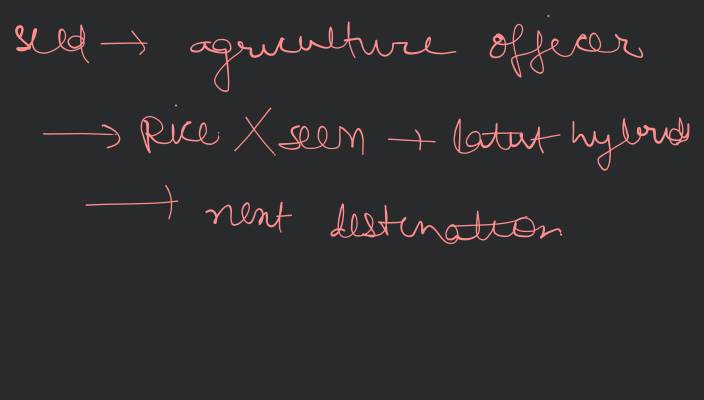 seed → agriculture officer
→ Rice X seen → latest hybrids
→ next destination